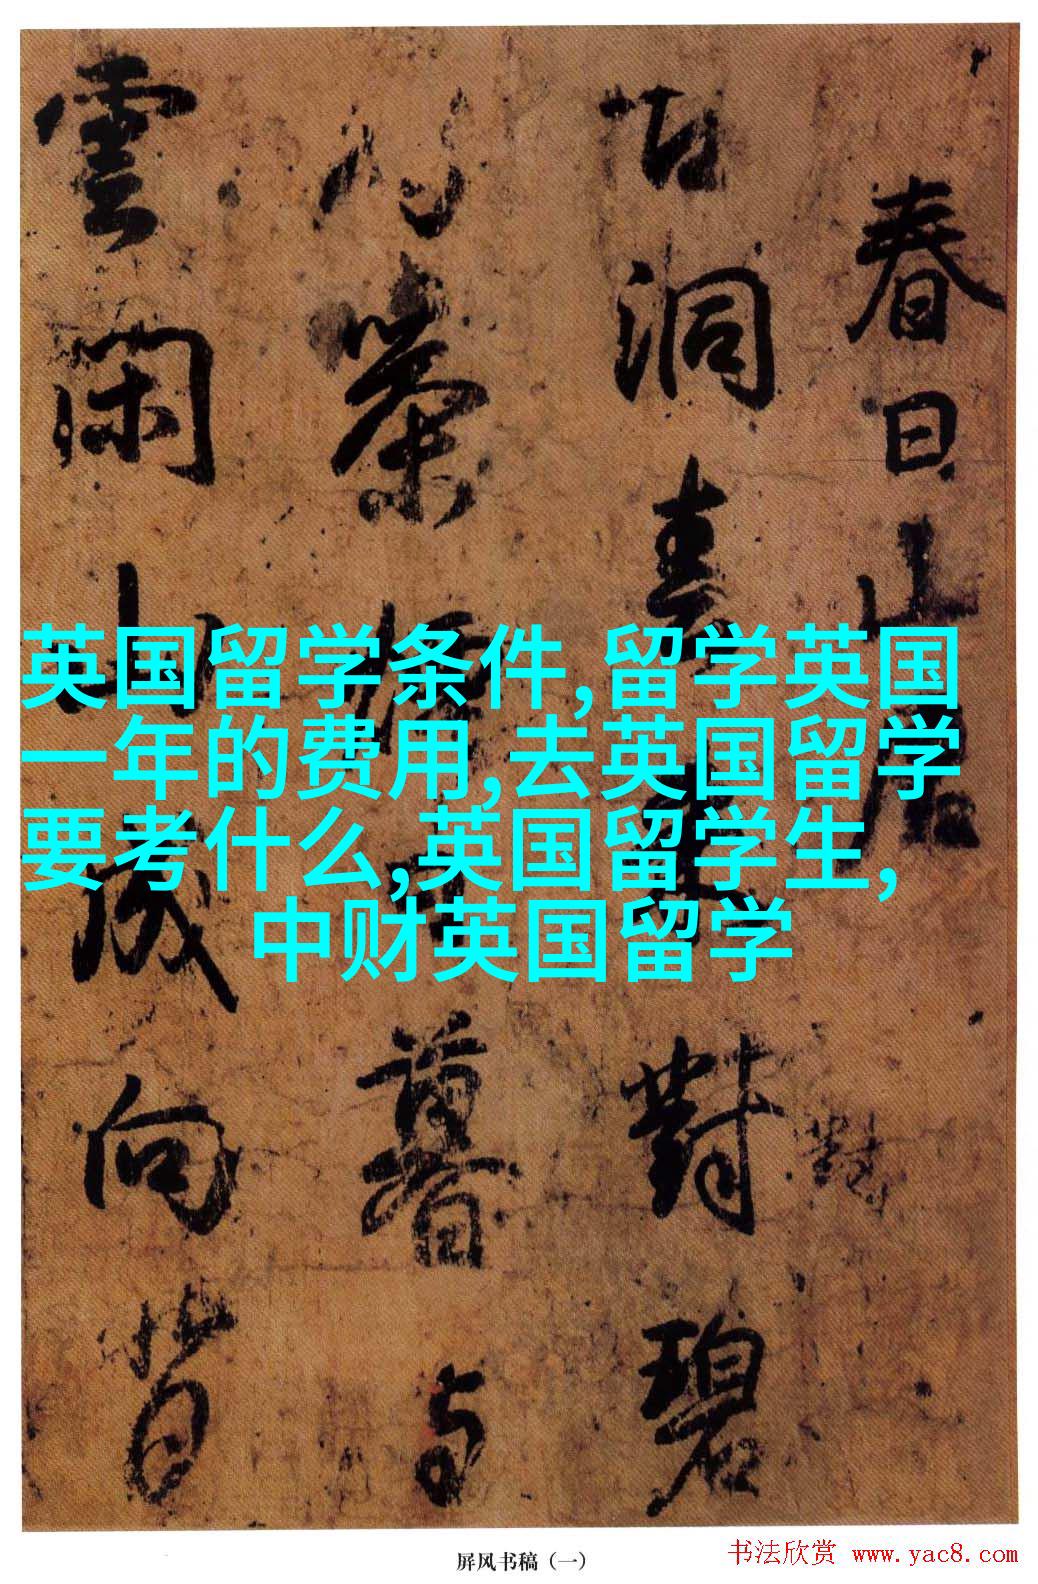 春日山居
古洞春來對碧
行藥 暮与
雲闲 成向背
對
英国留学条件,留学英国
一年的费用,去英国留学
要考什么,英国留学生,
中财英国留学
屏风书稿（一）
书法欣赏 www.yac8.com